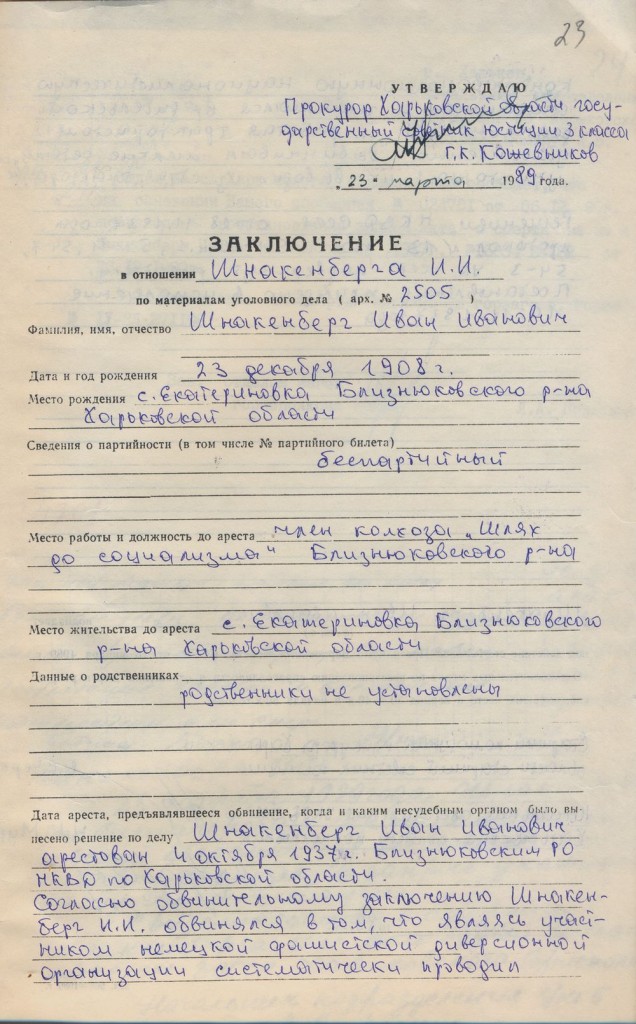 23
УТВЕРЖДАЮ
Прокурор Харьковской области госу-
дарственный советник юстиции 3 класса
Г.К. Кошевников
„23“ марта 1989 года.
ЗАКЛЮЧЕНИЕ
в отношении Шнакенберга И.И.
по материалам уголовного дела (арх. № 2505)
Фамилия, имя, отчество Шнакенберг Иван Иванович
Дата и год рождения 23 декабря 1908 г.
Место рождения с. Екатериновка Близнюковского р-на
Харьковской области
Сведения о партийности (в том числе № партийного билета)
беспартийный
Место работы и должность до ареста член колхоза „Шлях
до социализма“ Близнюковского р-на
Место жительства до ареста с. Екатериновка Близнюковского
р-на Харьковской области
Данные о родственниках
родственники не установлены
Дата ареста, предъявлявшееся обвинение, когда и каким несудебным органом было вы-
несено решение по делу Шнакенберг Иван Иванович
арестован 4 октября 1937 г. Близнюковским РО
НКВД по Харьковской области.
Согласно обвинительному заключению Шнакен-
берг И.И. обвинялся в том, что являясь участ-
ником немецкой фашистской диверсионной
организации систематически проводил